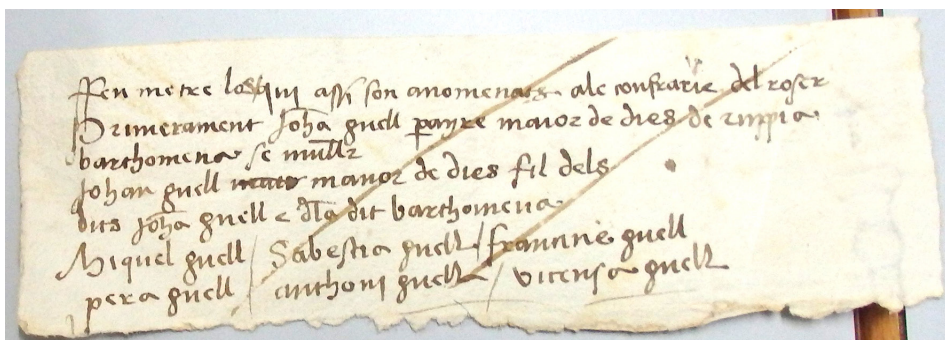 Fen metre los qui assi son anomenats ale confrarie del roser
Primerament Joha guell payre maior de dies de ruppia
barthomeua se muller
Johan guell maior de dies fil dels
dits Joha guell e dla dit barthomeua
Miquel guell / Sabestia guell / francine guell
pera guell / anthoni guell / vicensa guell